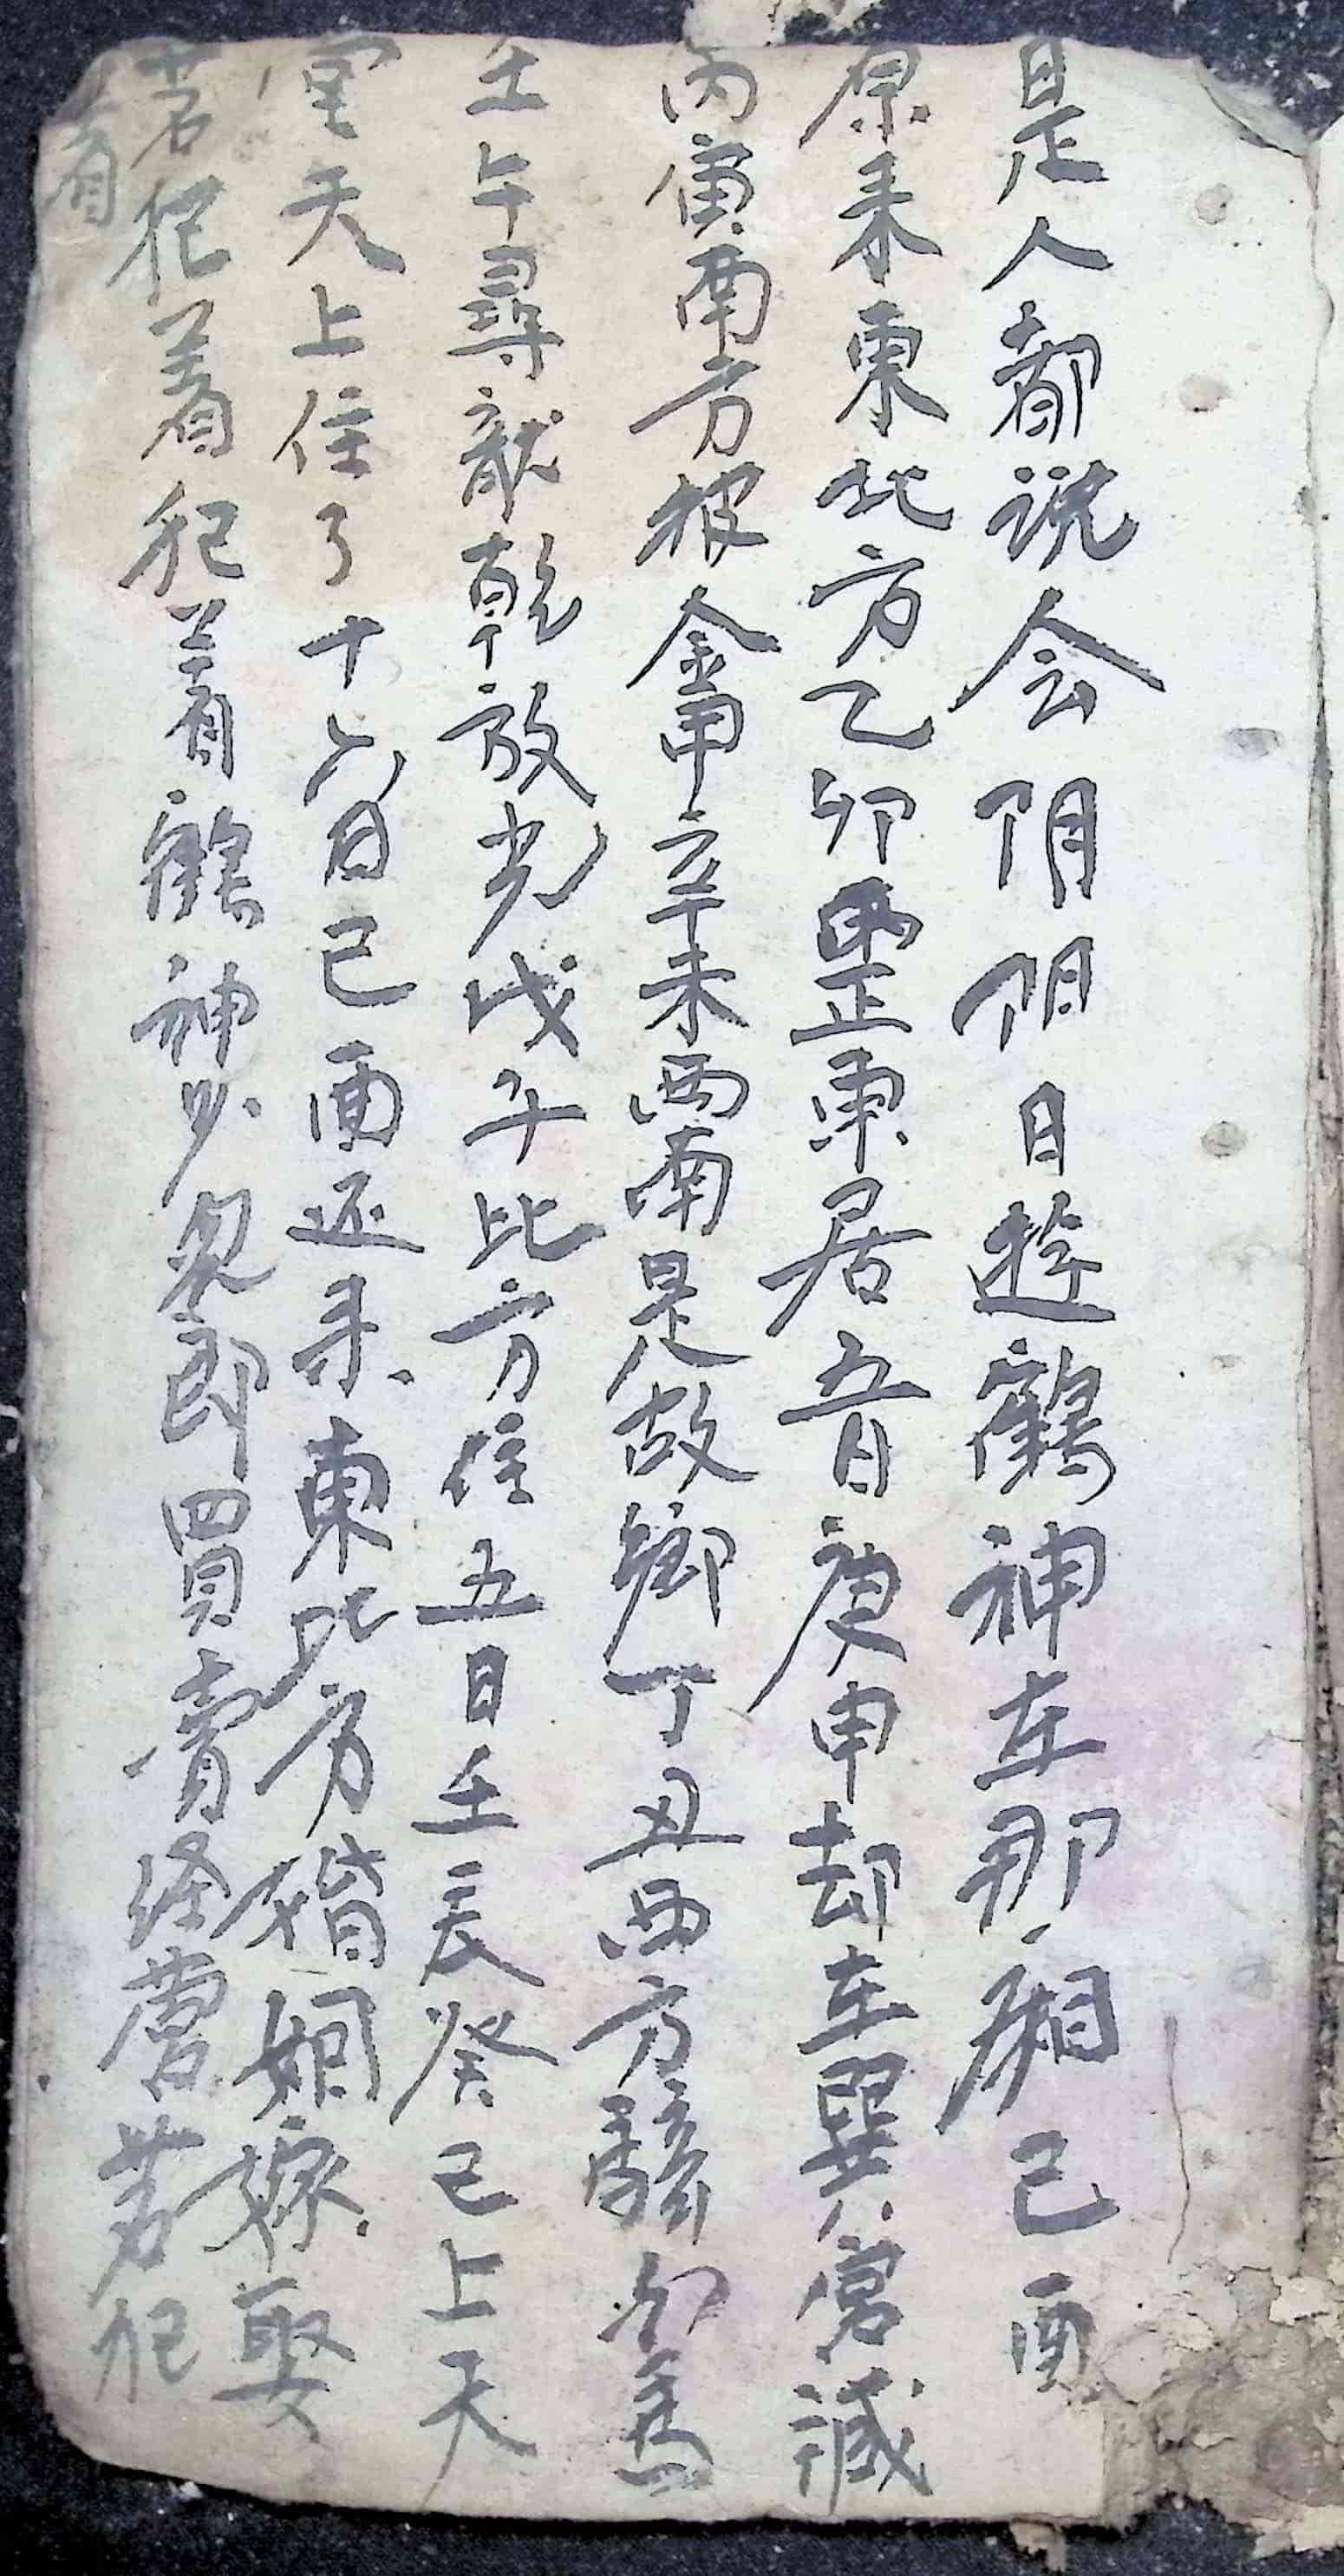 是人都说会阴阳日遊鶴神在那廂己酉
原来東北方乙卯正東居五日庚申却在巽宮藏
丙寅南方報金甲辛未西南是故鄉丁丑西方
壬午尋乾放光戊子北方住五日壬辰癸巳上天
宮天上住了十六日己酉还来東北方婚姻嫁娶
若犯着犯着鶴神少即買賣经营若犯
着